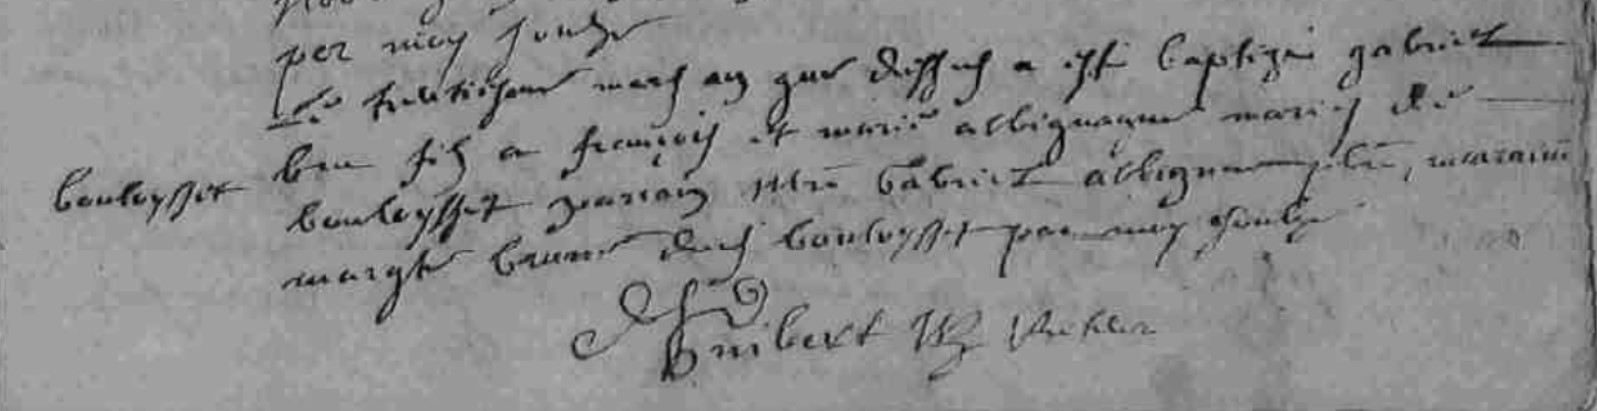 per moy Soulz
Le trantiesme mars an que dessus a esté baptizé gabriel
bouleysset
bru filz a françois et marie albignaque mariés de
bouleysset parrain Mre Gabriel albignac pbre, marainne
margte brune dud bouleysset par moy Soulz
Guibert